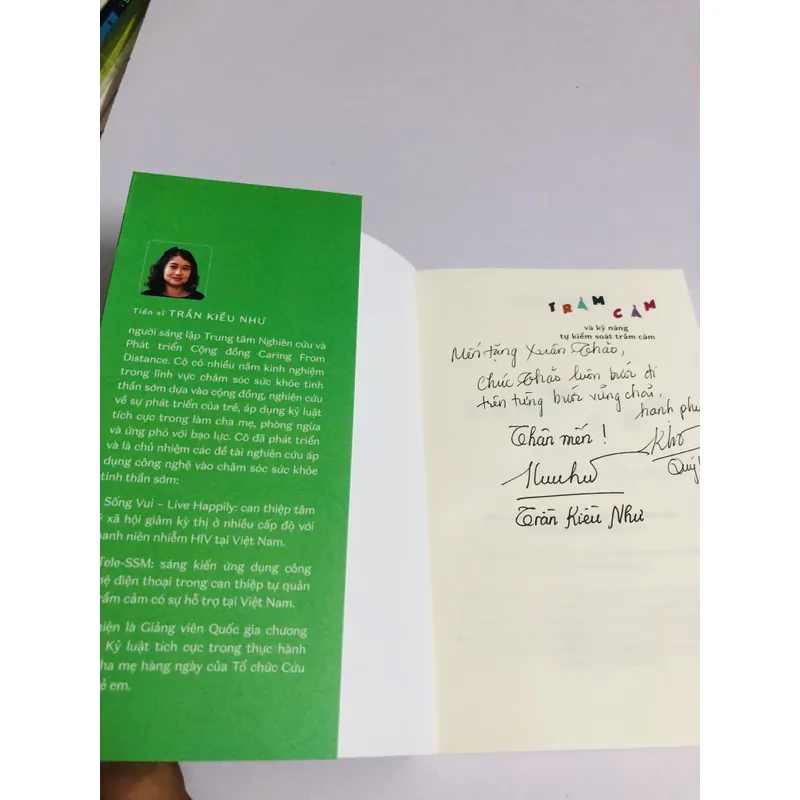 Tiến sĩ TRẦN KIỀU NHƯ
người sáng lập Trung tâm Nghiên cứu và
Phát triển Cộng đồng Caring From
Distance. Cô có nhiều năm kinh nghiệm
trong lĩnh vực chăm sóc sức khỏe tinh
thần sớm dựa vào cộng đồng, nghiên cứu
về sự phát triển của trẻ, áp dụng kỷ luật
tích cực trong làm cha mẹ, phòng ngừa
và ứng phó với bạo lực. Cô đã phát triển
và là chủ nhiệm các đề tài nghiên cứu áp
dụng công nghệ vào chăm sóc sức khỏe
tinh thần sớm:
Sống Vui – Live Happily: can thiệp tâm
xã hội giảm kỳ thị ở nhiều cấp độ với
anh niên nhiễm HIV tại Việt Nam.
Tele-SSM: sáng kiến ứng dụng công
hệ điện thoại trong can thiệp tự quản
trầm cảm có sự hỗ trợ tại Việt Nam.
hiện là Giảng viên Quốc gia chương
Kỷ luật tích cực trong thực hành
cha mẹ hàng ngày của Tổ chức Cứu
ẻ em.
TRẦM CẢM
và kỹ năng
tự kiểm soát trầm cảm
Mến tặng Xuân Thảo,
Chúc Thảo luôn bước đi
trên từng bước vững chãi,
hạnh phú
Thân mến!
Trần Kiều Như